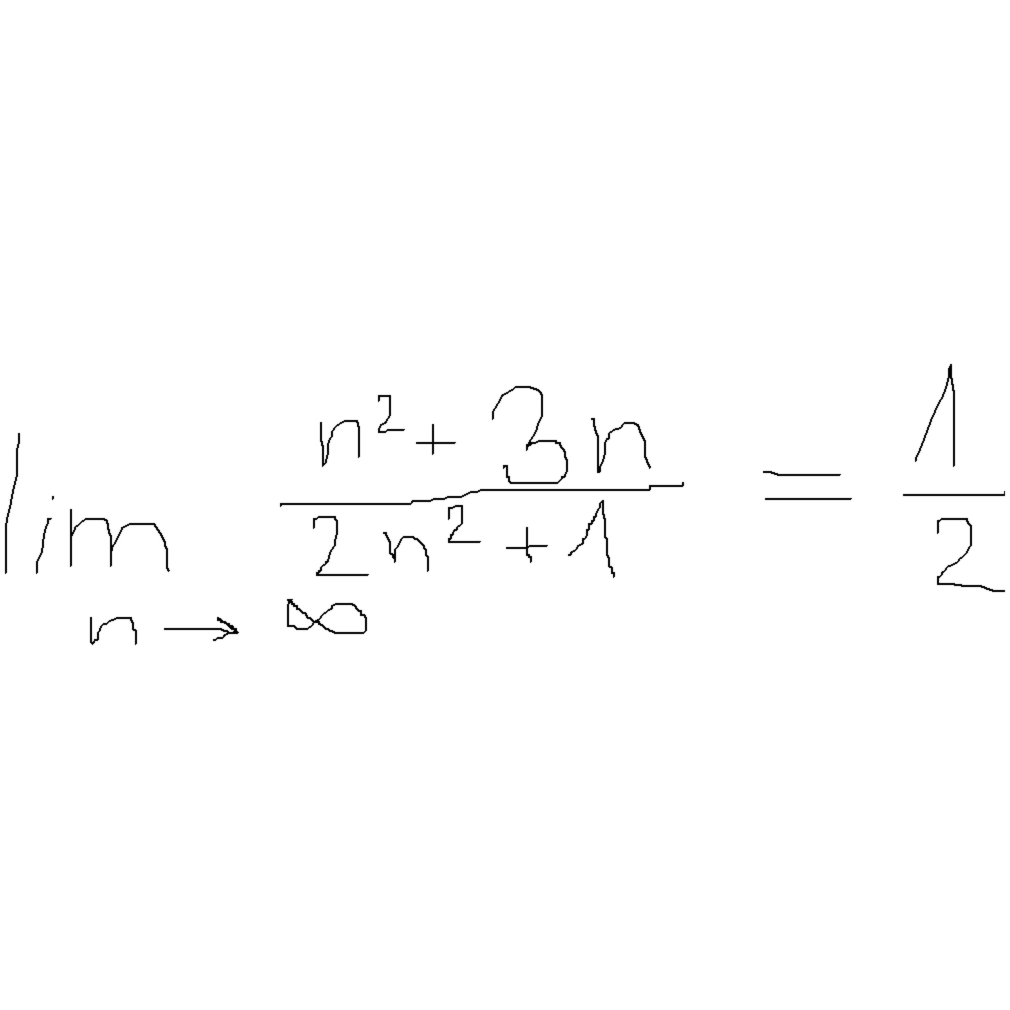 lim n² + 3n / 2n² + 1 = 1/2
n → ∞